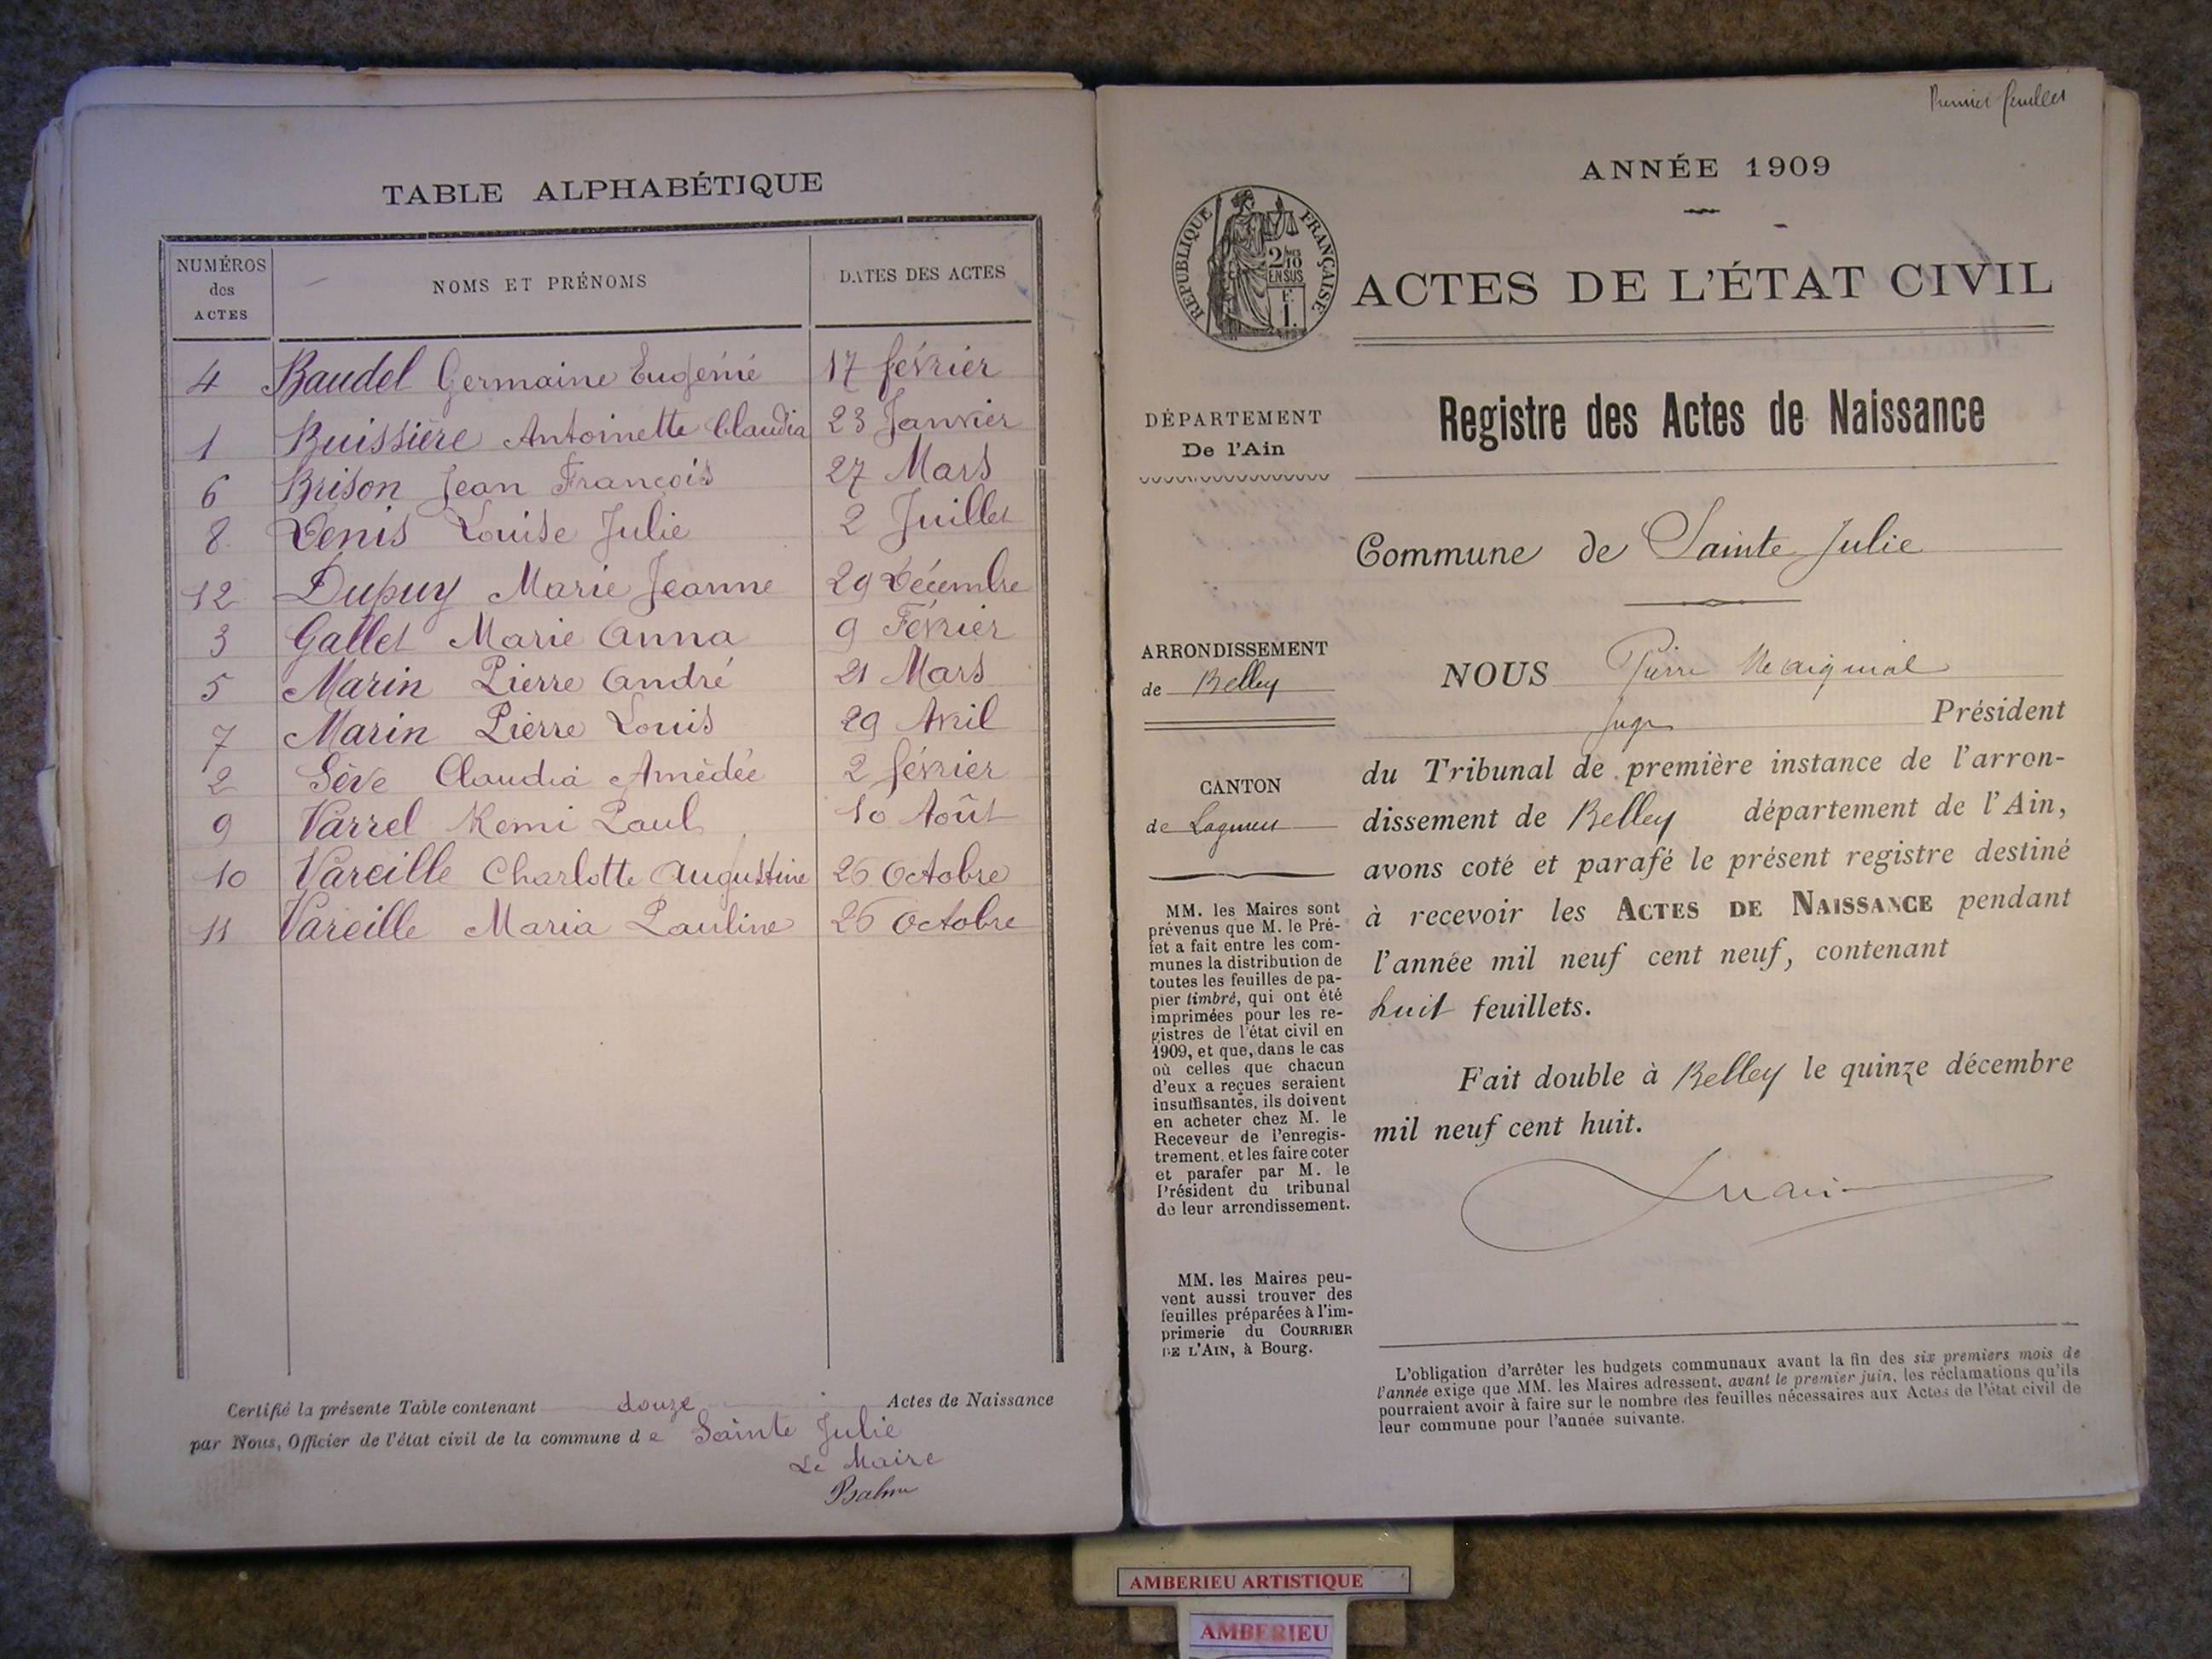 TABLE ALPHABÉTIQUE
NUMÉROS des ACTES
NOMS ET PRÉNOMS
DATES DES ACTES
4 Baudel Germaine Eugénie 17 février
1 Buissière Antoinette Claudia 23 Janvier
6 Brison Jean François 27 Mars
8 Denis Louise Julie 2 Juillet
12 Dupuy Marie Jeanne 29 Décembre
3 Gallet Marie Anna 9 Février
5 Marin Pierre André 21 Mars
7 Marin Pierre Louis 29 Avril
2 Sève Claudia Amédée 2 février
9 Varrel Remi Paul 10 Août
10 Vareille Charlotte Augustine 26 Octobre
11 Vareille Maria Pauline 26 Octobre
Certifié la présente Table contenant douze Actes de Naissance
par Nous, Officier de l'état civil de la commune de Sainte Julie
Le Maire
Premier feuillet
ANNÉE 1909
RÉPUBLIQUE FRANÇAISE
2/10 EN SUS
F. 1.
ACTES DE L'ÉTAT CIVIL
DÉPARTEMENT
De l'Ain
Registre des Actes de Naissance
Commune de Sainte Julie
ARRONDISSEMENT
de Belley
CANTON
de Lagnieu
MM. les Maires sont
prévenus que M. le Pré-
fet a fait entre les com-
munes la distribution de
toutes les feuilles de pa-
pier timbré, qui ont été
imprimées pour les re-
gistres de l'état civil en
1909, et que, dans le cas
où celles que chacun
d'eux a reçues seraient
insuffisantes, ils doivent
en acheter chez M. le
Receveur de l'enregis-
trement, et les faire coter
et parafer par M. le
Président du tribunal
de leur arrondissement.
MM. les Maires peu-
vent aussi trouver des
feuilles préparées à l'im-
primerie du COURRIER
DE L'AIN, à Bourg.
NOUS Pierre
Juge Président
du Tribunal de première instance de l'arron-
dissement de Belley département de l'Ain,
avons coté et parafé le présent registre destiné
à recevoir les ACTES DE NAISSANCE pendant
l'année mil neuf cent neuf, contenant
huit feuillets.
Fait double à Belley le quinze décembre
mil neuf cent huit.
L'obligation d'arrêter les budgets communaux avant la fin des six premiers mois de
l'année exige que MM. les Maires adressent, avant le premier juin, les réclamations qu'ils
pourraient avoir à faire sur le nombre des feuilles nécessaires aux Actes de l'état civil de
leur commune pour l'année suivante.
AMBERIEU ARTISTIQUE
AMBERIEU